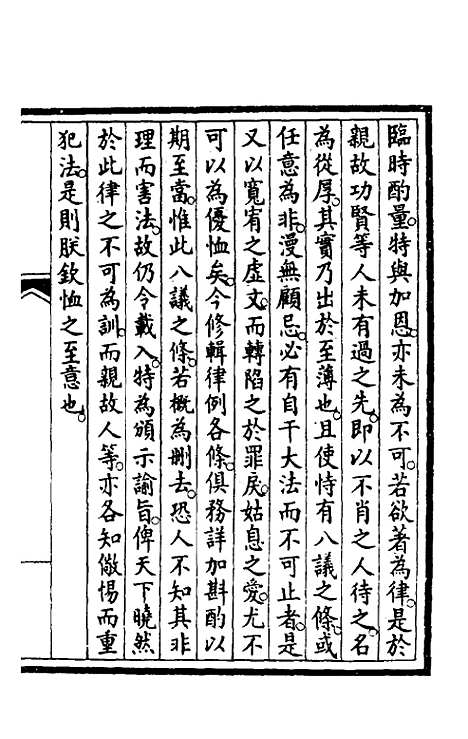 臨時酌量。特與加恩。亦未為不可。若欲著為律。是於
親故功賢等人未有過之先。即以不肖之人待之。名
為從厚。其實乃出於至薄也。且使恃有八議之條。或
任意為非。漫無顧忌。必有自干大法而不可止者。是
又以寬宥之虛文。而轉陷之於罪戾。姑息之愛。尤不
可以為優恤矣。今修輯律例各條。俱務詳加斟酌以
期至當。惟此八議之條。若概為刪去。恐人不知其非
理而害法。故仍令載入。特為頒示諭旨。俾天下曉然
於此律之不可為訓。而親故人等。亦各知儆惕而重
犯法。是則朕欽恤之至意也。